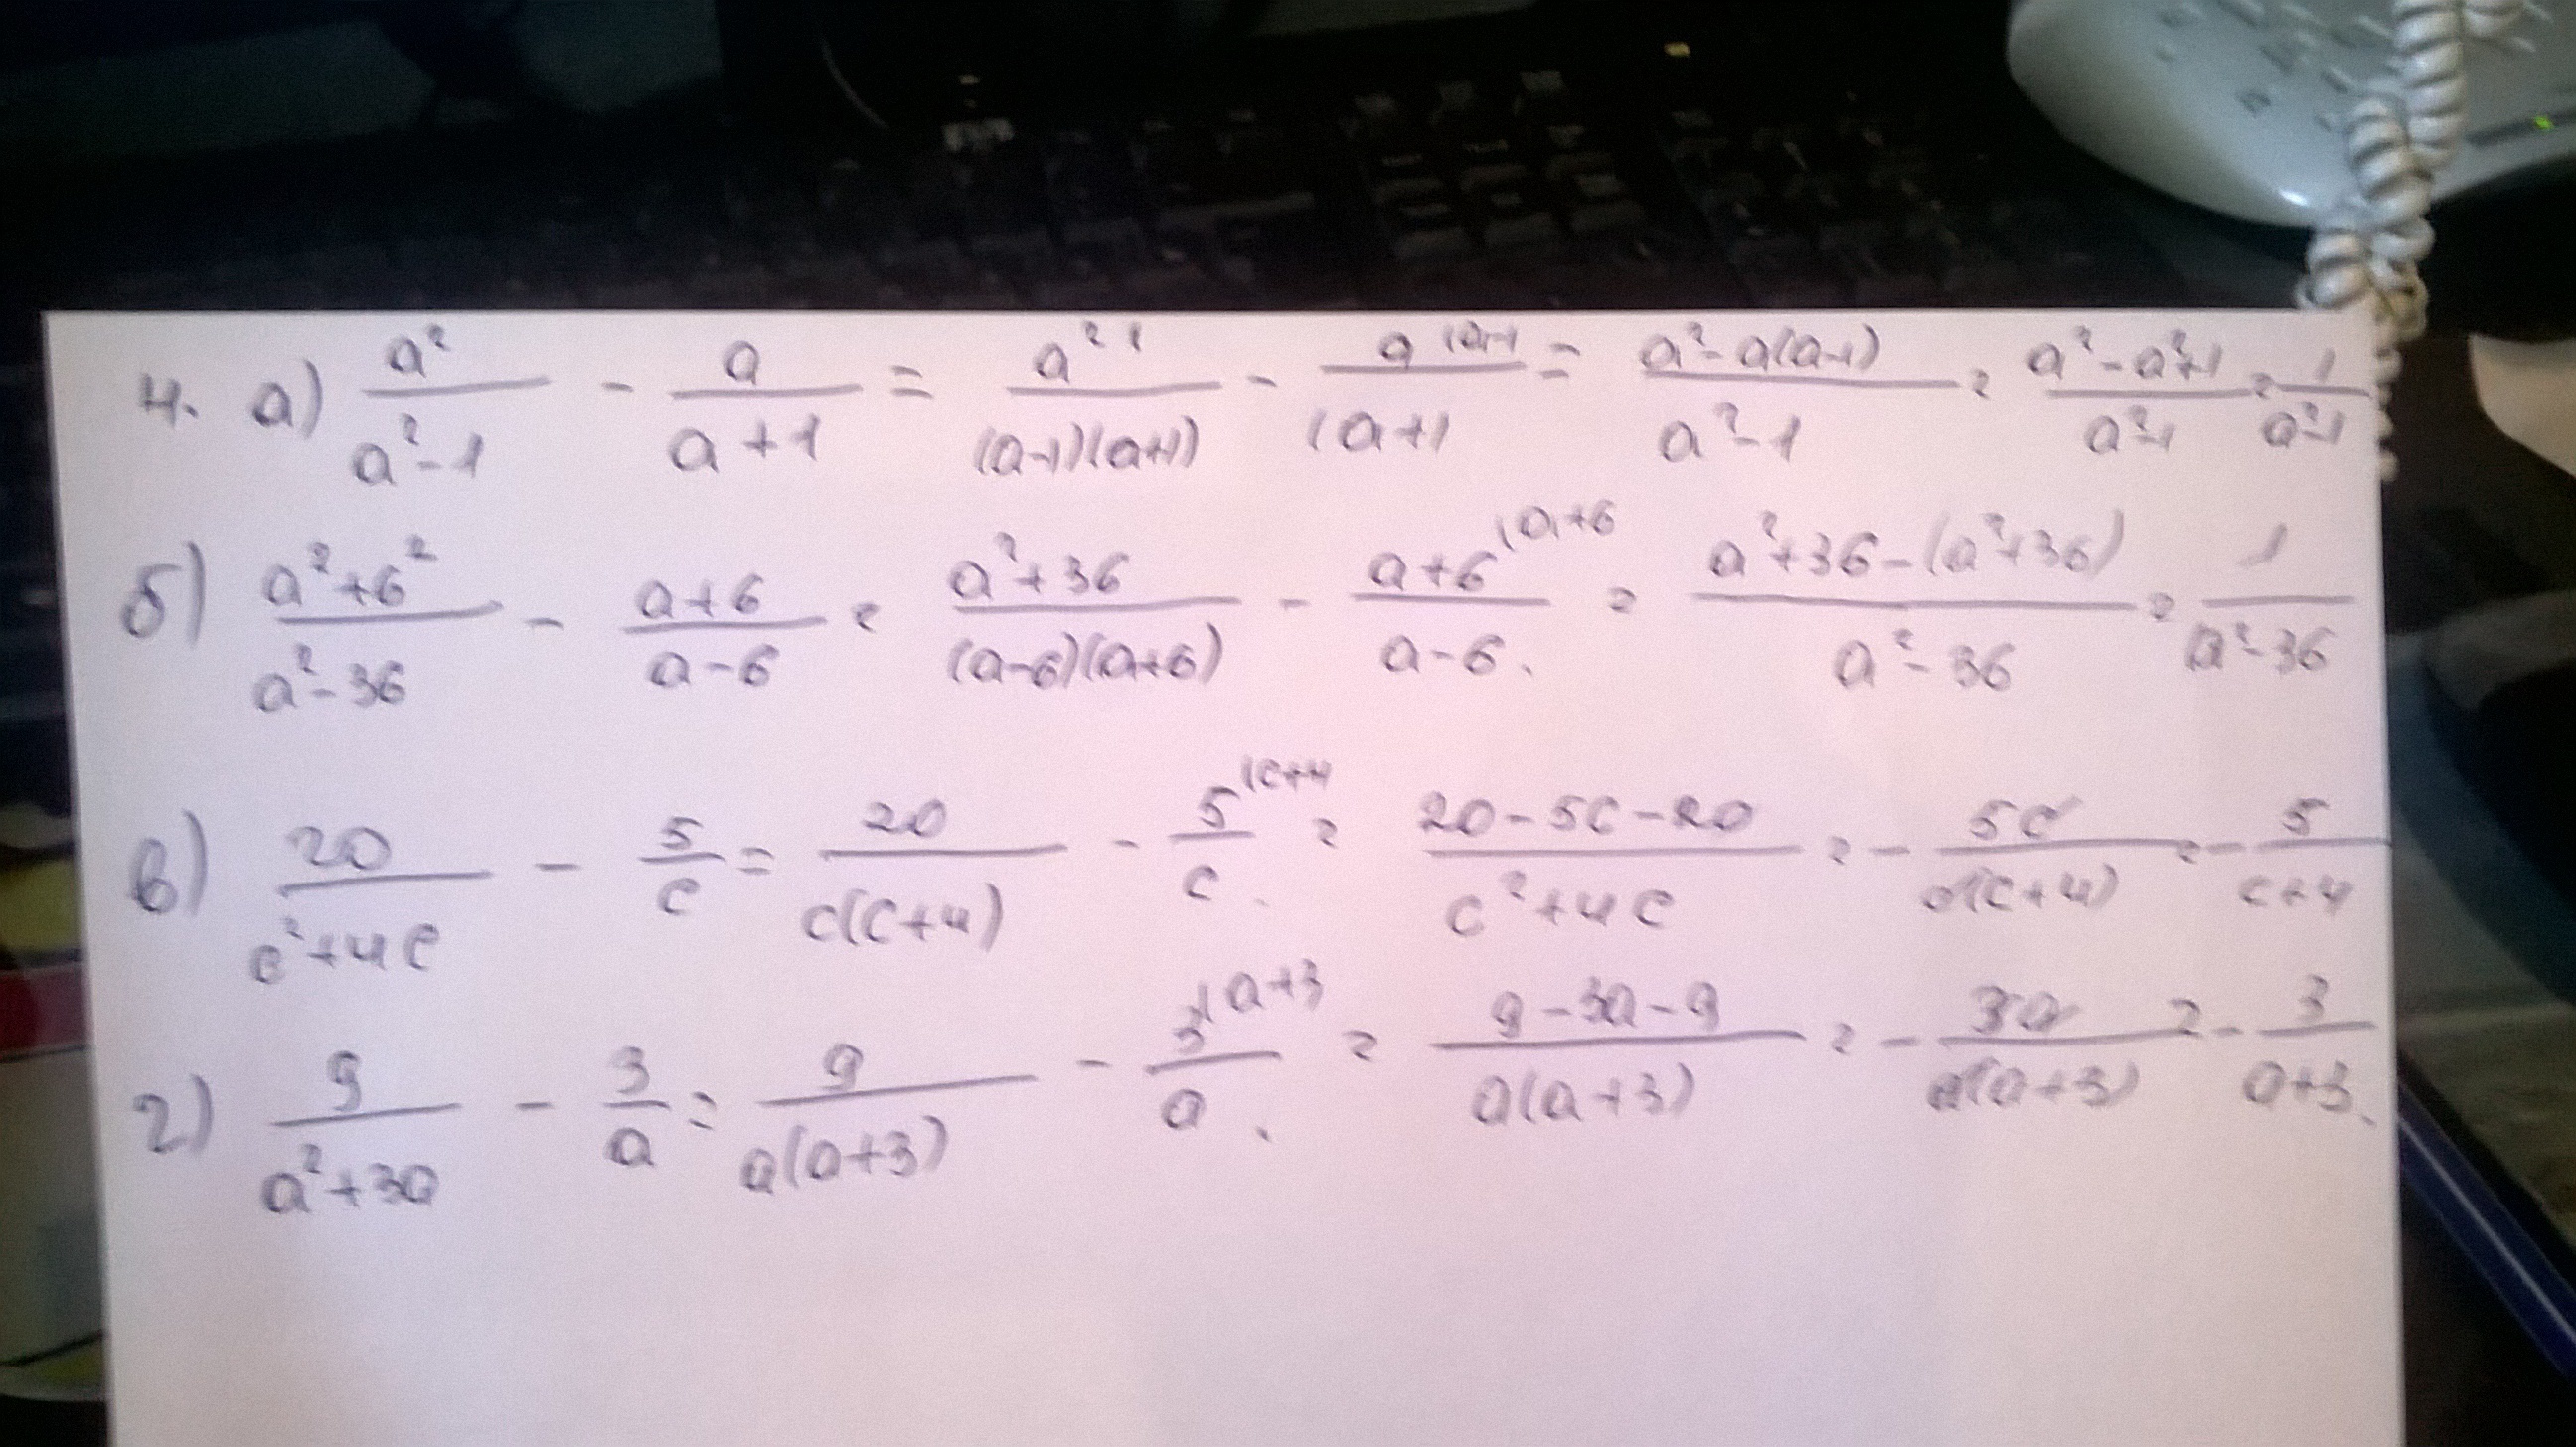 4. а) a²/(a²-1) - a/(a+1) = a² ¹/((a-1)(a+1)) - a ⁽ᵃ⁻¹/(a+1) = (a²-a(a-1))/(a²-1) = (a²-a²+1)/(a²-1) = 1/(a²-1)
б) (a²+6²)/(a²-36) - (a+6)/(a-6) = (a²+36)/((a-6)(a+6)) - (a+6 ⁽ᵃ⁺⁶)/(a-6) = (a²+36-(a²+36))/(a²-36) = 1/(a²-36)
в) 20/(c²+4c) - 5/c = 20/(c(c+4)) - 5 ⁽ᶜ⁺⁴/c = (20-5c-20)/(c²+4c) = - 5c/(c(c+4)) = - 5/(c+4)
г) 9/(a²+3a) - 3/a = 9/(a(a+3)) - 3 ⁽ᵃ⁺³/a = (9-3a-9)/(a(a+3)) = - 3a/(a(a+3)) = - 3/(a+3).